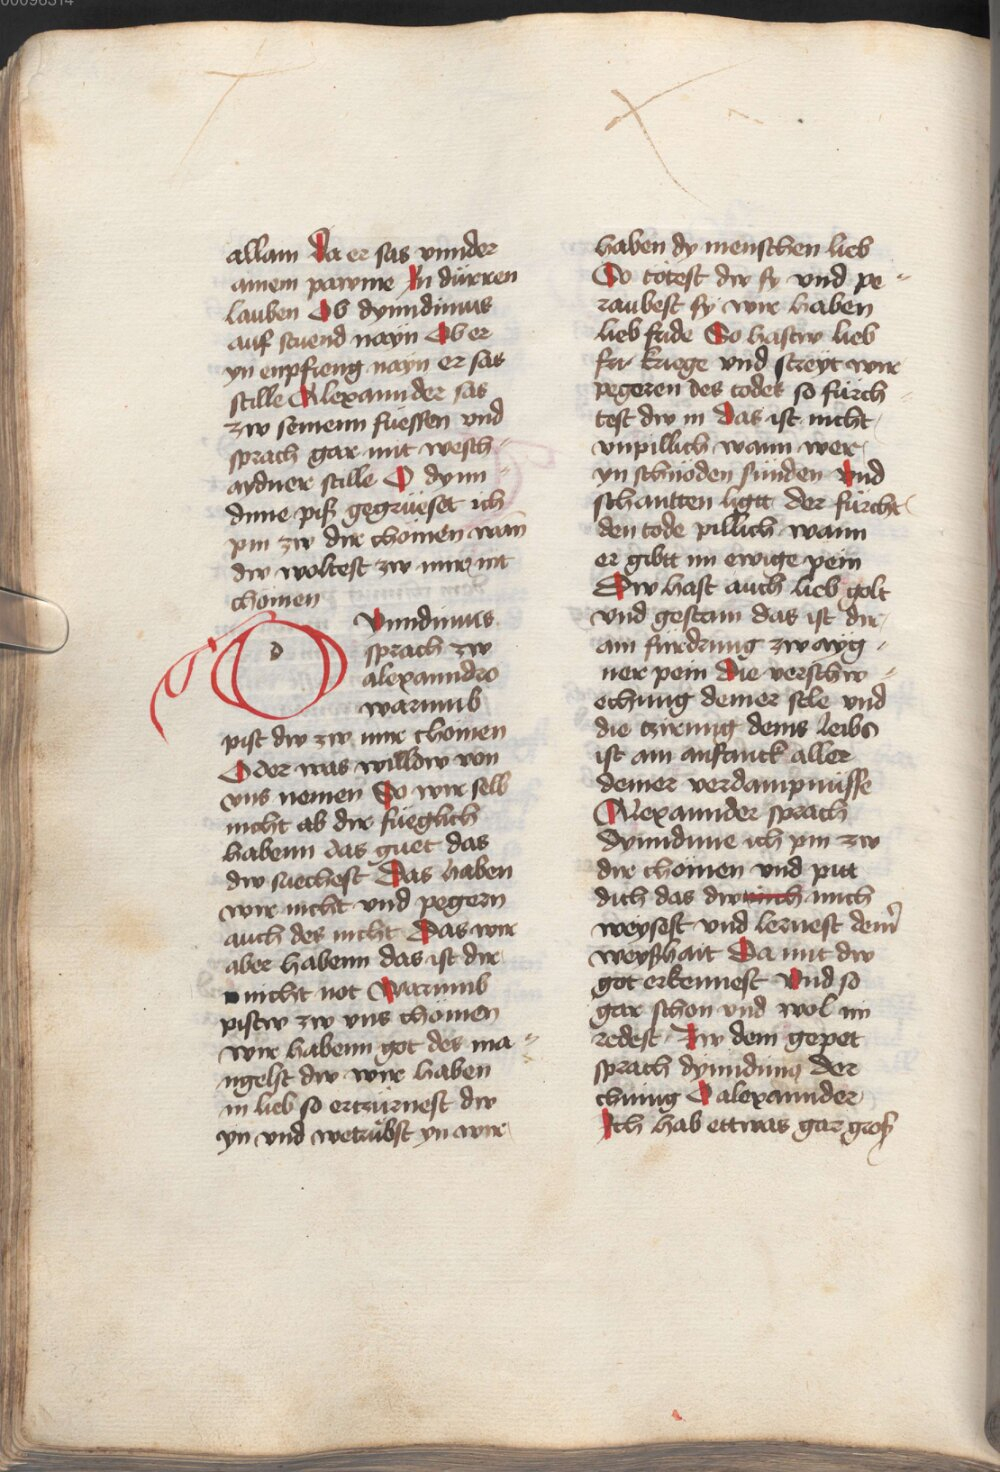 00096314
allain Da er sas vnnder
ainem pawme In dürren
lauben Ob dynndimus
auf stuend nayn Ob er
yn enpfieng nayn er sas
stille Alexannder sas
zw seinenn füessen vnd
sprach gar mit wesch-
aydner stille O dynn-
dime piß gegrüeset ich
pin zw dir chömen wan
dw woltest zw mir nit
chömen
Dynndimus
sprach zw
alexanndro
warumb
pist dw zw mir chomen
Oder was willdw von
vns nemen So wir selb
nicht ab dir füeglich
habenn das guet das
dw suechest Das haben
wir nicht vnd pegern
auch des nicht Das wir
aber habenn das ist dir
nicht not Warumb
pistw zw vns chömen
wir habenn got des ma-
ngelst dw wir haben
in lieb so ertzürnest dw
yn vnd wetrübst yn wir
haben dy menschen lieb
So tötest dw sy vnd pe-
raubest sy wir haben
lieb fride So hastw lieb
für kriege vnd streyt wir
pegeren des todes so fürch-
test dw in Das ist nicht
vnpillich wann wer
yn schnöden sünden vnd
schantten ligtt der fürcht
den tode pillich wann
er gibtt im ewige pein
Dw hast auch lieb golt
vnd gestain das ist dir
ain fürdrung zw ayg-
ner pein Die verschw-
echung deiner sele vnd
die tzirung deins leibs
ist ain anfanck aller
deiner verdampnüsse
Alexannder sprach
Dynndime ich pin zw
dir chömen vnd pitt
dich das dw mich mich
weysest vnd lernest dein
weyßhait Da mit dw
got erkennest Vnd so
gar schon vnd wol im
redest Zw dem gepet
sprach dynndimus der
chunig O alexannder
Ich hab ettwas gar groß